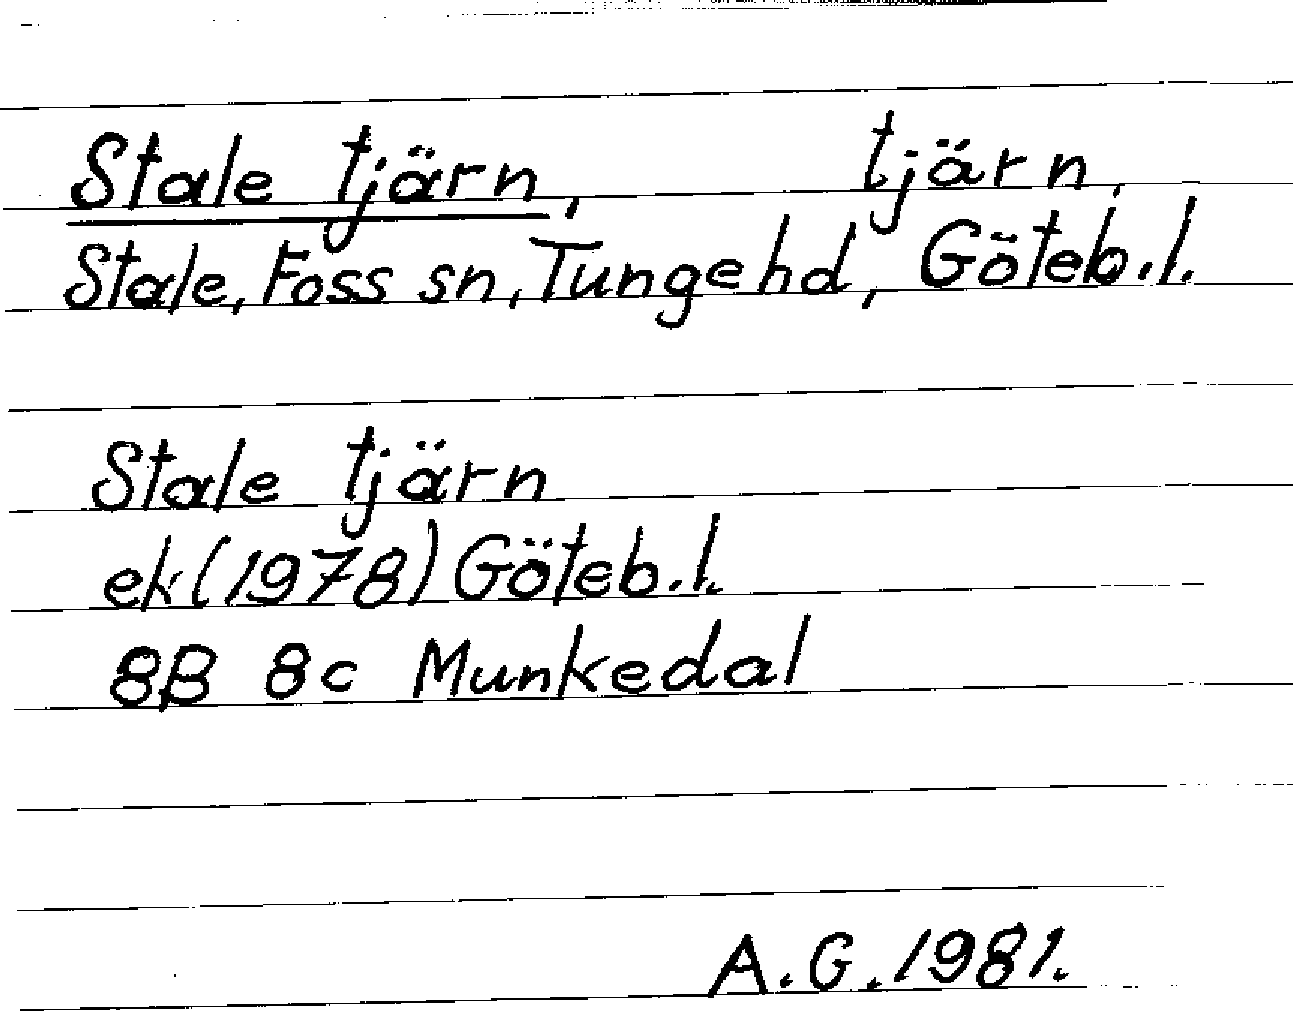 Stale tjärn, tjärn,
Stale, Foss sn, Tunge hd, Göteb.l.
Stale tjärn
ek (1978) Göteb.l.
8B 8c Munkedal
A.G. 1981.